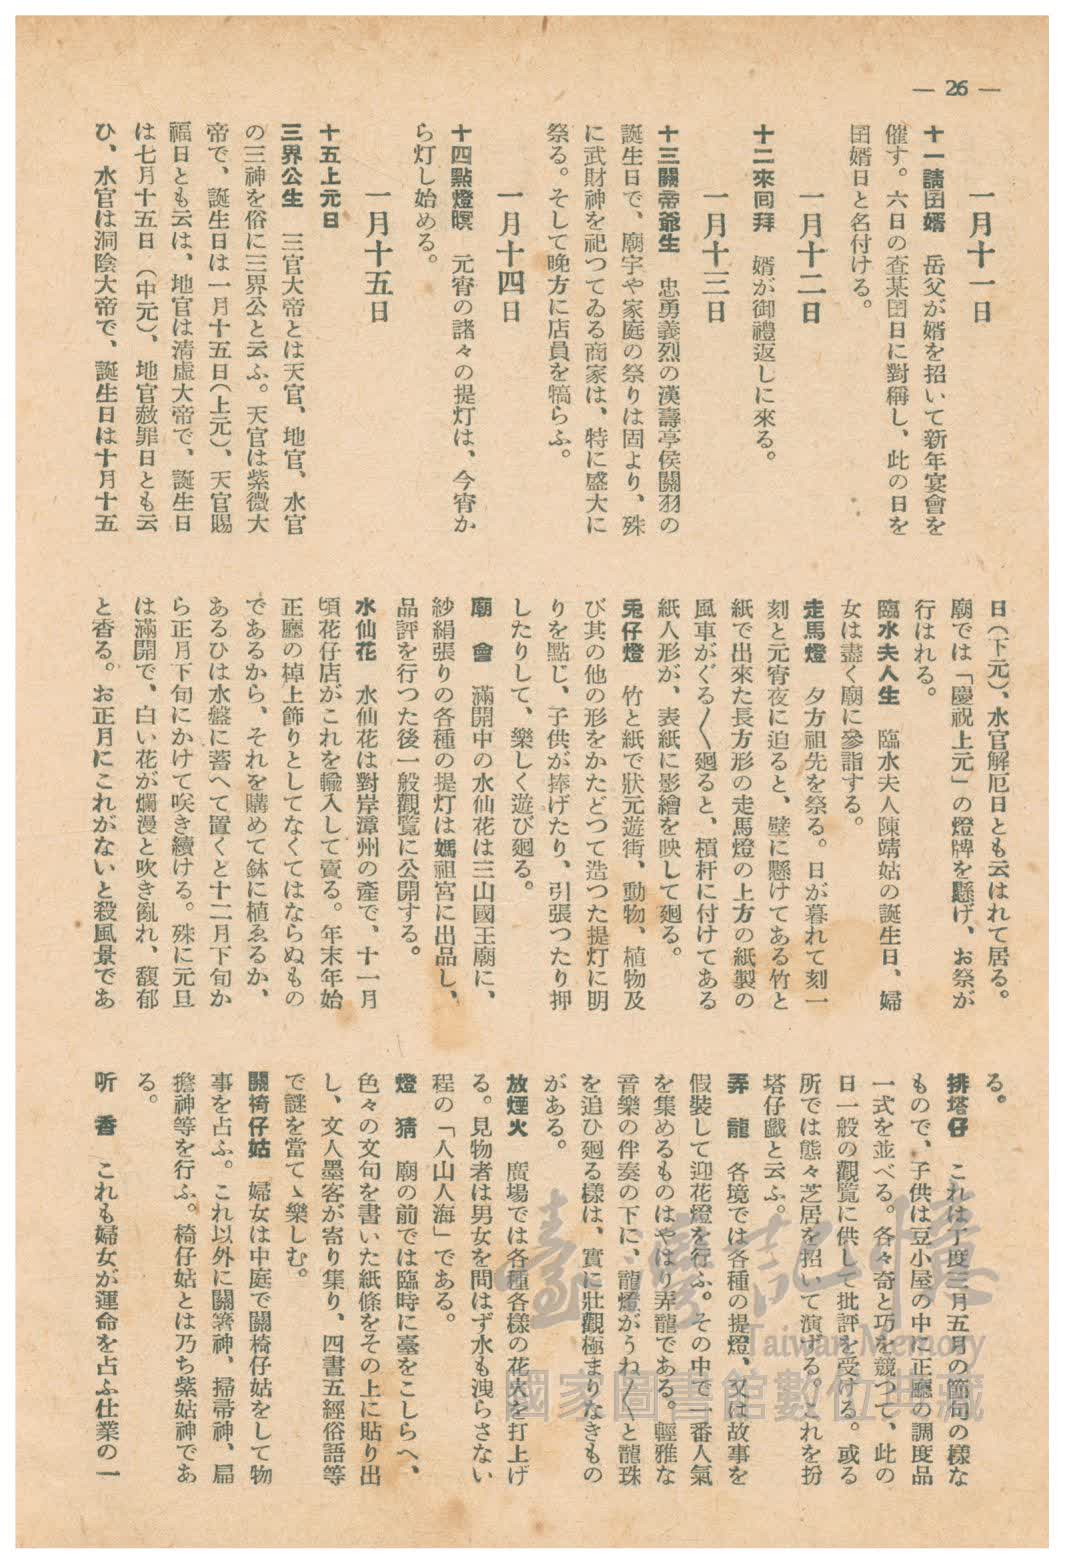 — 26 —
一月十一日
十一請囝婿　岳父が婿を招いて新年宴會を
催す。六日の査某囝日に對稱し、此の日を
囝婿日と名付ける。
一月十二日
十二來回拜　婿が御禮返しに來る。
一月十三日
十三關帝爺生　忠勇義烈の漢壽亭侯關羽の
誕生日で、廟宇や家庭の祭りは固より、殊
に武財神を祀つてゐる商家は、特に盛大に
祭る。そして晚方に店員を犒らふ。
一月十四日
十四點燈暝　元宵の諸々の提灯は、今宵か
ら灯し始める。
一月十五日
十五上元日
三界公生　三官大帝とは天官、地官、水官
の三神を俗に三界公と云ふ。天官は紫微大
帝で、誕生日は一月十五日（上元）、天官賜
福日とも云は、地官は清虛大帝で、誕生日
は七月十五日（中元）、地官赦罪日とも云
ひ、水官は洞陰大帝で、誕生日は十月十五
日（下元）、水官解厄日とも云はれて居る。
廟では「慶祝上元」の燈牌を懸げ、お祭が
行はれる。
臨水夫人生　臨水夫人陳靖姑の誕生日、婦
女は盡く廟に參詣する。
走馬燈　夕方祖先を祭る。日が暮れて刻一
刻と元宵夜に迫ると、壁に懸けてある竹と
紙で出來た長方形の走馬燈の上方の紙製の
風車がぐる〱廻ると、槓杆に付けてある
紙人形が、表紙に影繪を映して廻る。
兎仔燈　竹と紙で狀元遊街、動物、植物及
び其の他の形をかたどつて造つた提灯に明
りを點じ、子供が捧げたり、引張つたり押
したりして、樂しく遊び廻る。
廟　會　滿開中の水仙花は三山國王廟に、
紗絹張りの各種の提灯は媽祖宮に出品し、
品評を行つた後一般觀覽に公開する。
水仙花　水仙花は對岸漳州の產で、十一月
頃花仔店がこれを輸入して賣る。年末年始
正廳の棹上飾りとしてなくてはならぬもの
であるから、それを購めて鉢に植ゑるか、
あるひは水盤に蓄へて置くと十二月下旬か
ら正月下旬にかけて咲き續ける。殊に元旦
は滿開で、白い花が爛漫と吹き亂れ、馥郁
と香る。お正月にこれがないと殺風景であ
る。
排塔仔　これは丁度三月五月の節句の樣な
もので、子供は豆小屋の中に正廳の調度品
一式を並べる。各々奇と巧を競つて、此の
日一般の觀覽に供して批評を受ける。或る
所では態々芝居を招いて演ずる。これを扮
塔仔戲と云ふ。
弄　龍　各境では各種の提燈、又は故事を
假裝して迎花燈を行ふ。その中で一番人氣
を集めるものはやはり弄龍である。輕雅な
音樂の伴奏の下に、龍燈がうね〱と龍珠
を追ひ廻る樣は、實に壯觀極まりなきもの
がある。
放煙火　廣場では各種各樣の花火を打上げ
る。見物者は男女を問はず水も洩らさない
程の「人山人海」である。
燈　猜　廟の前では臨時に臺をこしらへ、
色々の文句を書いた紙條をその上に貼り出
し、文人墨客が寄り集り、四書五經俗語等
で謎を當てゝ樂しむ。
關椅仔姑　婦女は中庭で關椅仔姑をして物
事を占ふ。これ以外に關箸神、掃帚神、扁
擔神等を行ふ。椅仔姑とは乃ち紫姑神であ
る。
听　香　これも婦女が運命を占ふ仕業の一
臺灣記憶
Taiwan Memory
國家圖書館數位典藏